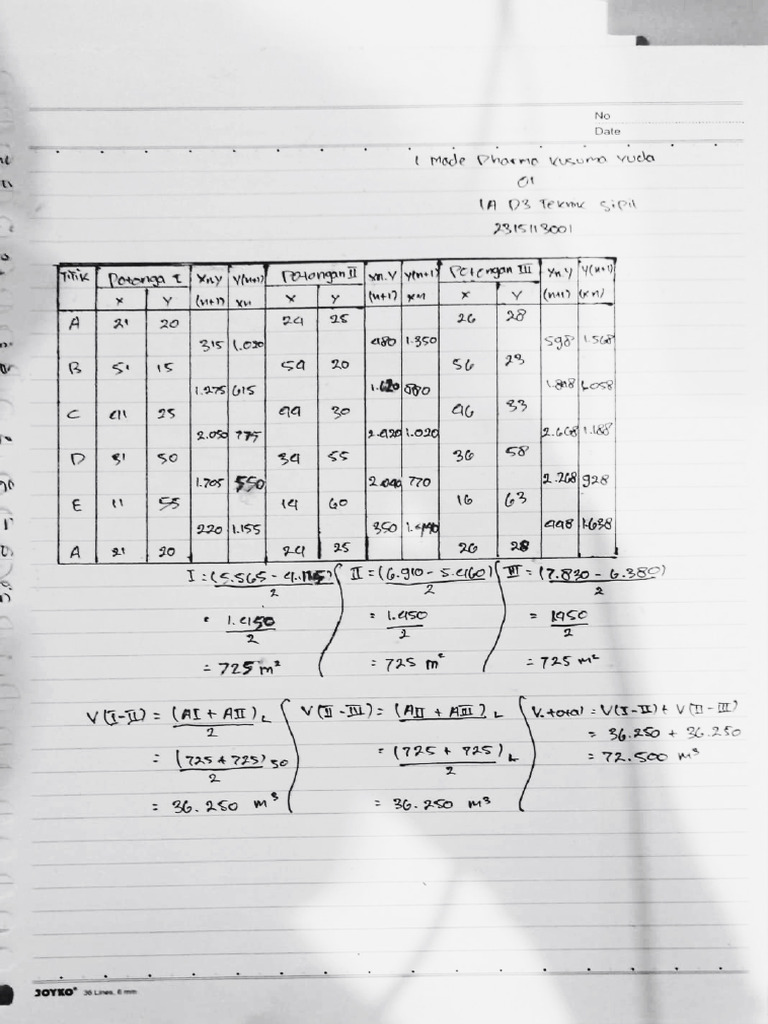 No
Date
I Made Dharma Kusuma Yuda
01
1A D3 Teknik Sipil
2315113001
Titik Potonga I Xn.Y Y(n+1) Potongan II Xn.Y Y(n+1) Potongan III Xn.Y Y(n+1)
X Y (n+1) Xn X Y (n+1) Xn X Y (n+1) (Xn)
A 21 20 24 25 26 28
315 1.020 480 1.350 598 1.568
B 51 15 54 20 56 23
1.275 615 1.620 880 1.848 1.058
C 41 25 44 30 46 33
2.050 775 2.420 1.020 2.668 1.188
D 31 50 34 55 36 58
1.705 550 2.040 770 2.268 928
E 11 55 14 60 16 63
220 1.155 350 1.440 448 1.638
A 21 20 24 25 26 28
I = (5.565 - 4.115) II = (6.910 - 5.460) III = (7.830 - 6.380)
2 2 2
= 1.450 = 1.450 = 1450
2 2 2
= 725 m² = 725 m² = 725 m²
V(I-II) = (AI + AII) L V(II-III) = (AII + AIII) L V.total = V(I-II) + V(II-III)
2 2 = 36.250 + 36.250
= (725 + 725) 50 = (725 + 725) L = 72.500 m³
2 2
= 36.250 m³ = 36.250 m³
JOYKO 36 Lines, 6 mm